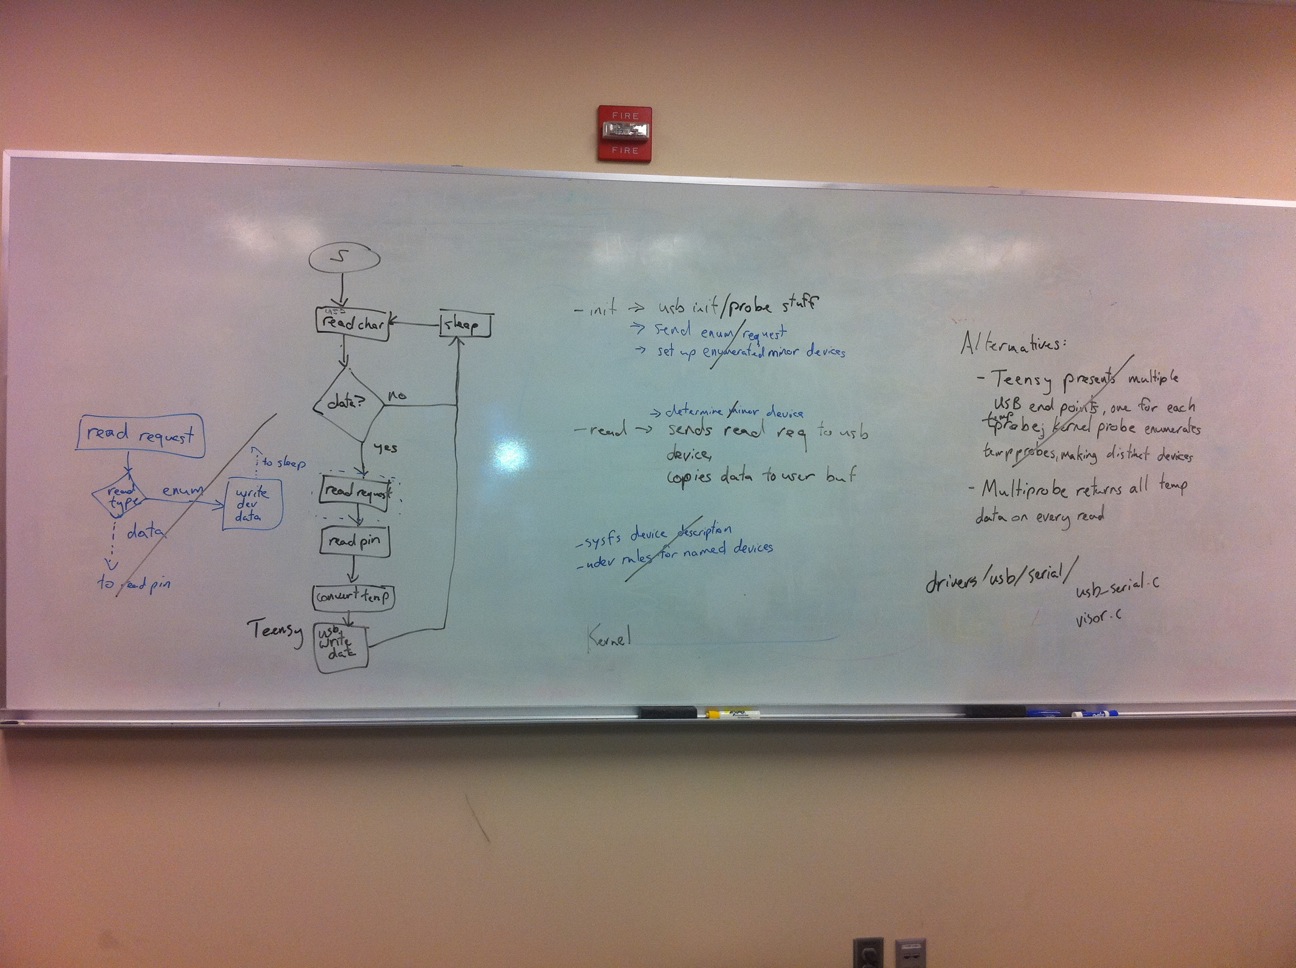 FIRE
FIRE
S
usb
read char
sleep
data?
no
yes
read request
read pin
convert temp
usb
write
data
Teensy
read request
read
type
enum
write
dev
data
to sleep
data
to read pin
- init → usb init/probe stuff
→ send enum request
→ set up enumerated minor devices
→ determine minor device
- read → sends read req to usb
device,
copies data to user buf
- sysfs device description
- udev rules for named devices
Kernel
Alternatives:
- Teensy presents multiple
USB end points, one for each
temp
probe; kernel probe enumerates
temp probes, making distinct devices
- Multiprobe returns all temp
data on every read
drivers/usb/serial/
usb_serial.c
visor.c